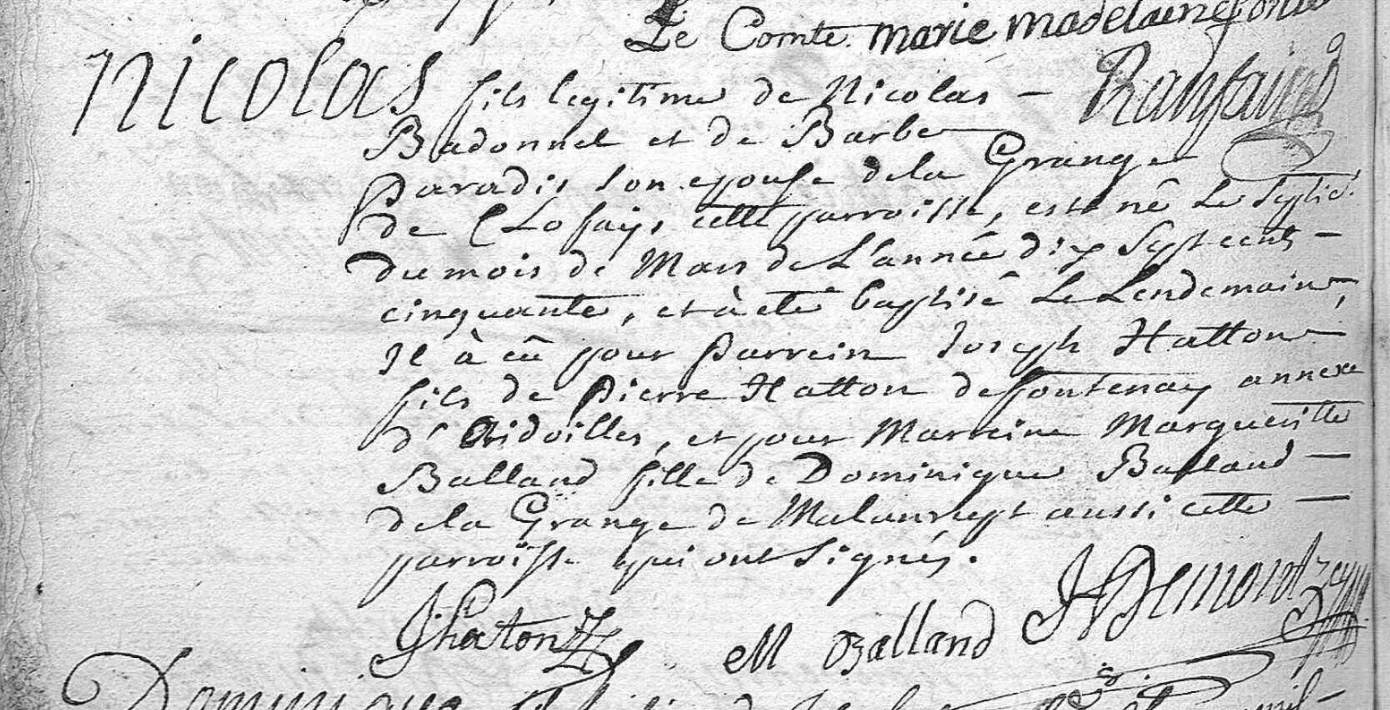 Le Comte marie madelaine
Ranfaing
Nicolas fils legitime de Nicolas –
Badonnel et de Barbe
paradis son epouse dela Grange
de Clofays cette parroisse, est né le
du mois de Mars de L'année dix sept cents –
cinquante, et à eté baptisé Le Lendemain,
il à eû pour parrein Joseph Hatton
fils de pierre Hatton de fontenay annexe
d'Aidoilles, et pour Marreine Margueritte
Balland fille de Dominique Balland –
dela Grange de aussi cette –
parroisse qui ont signés.
Jhatton M Balland
Dominique